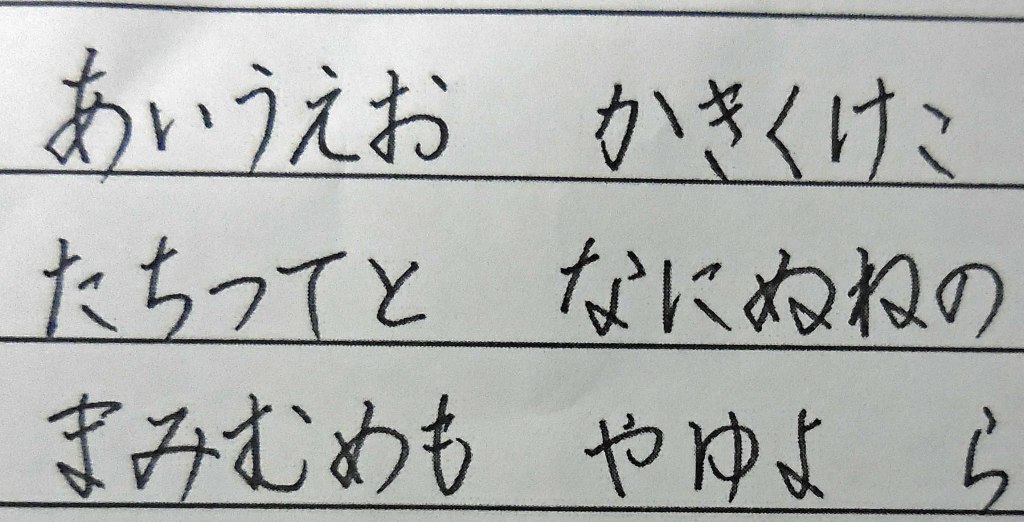 あいうえお　かきくけこ
たちつてと　なにぬねの
まみむめも　やゆよ　ら